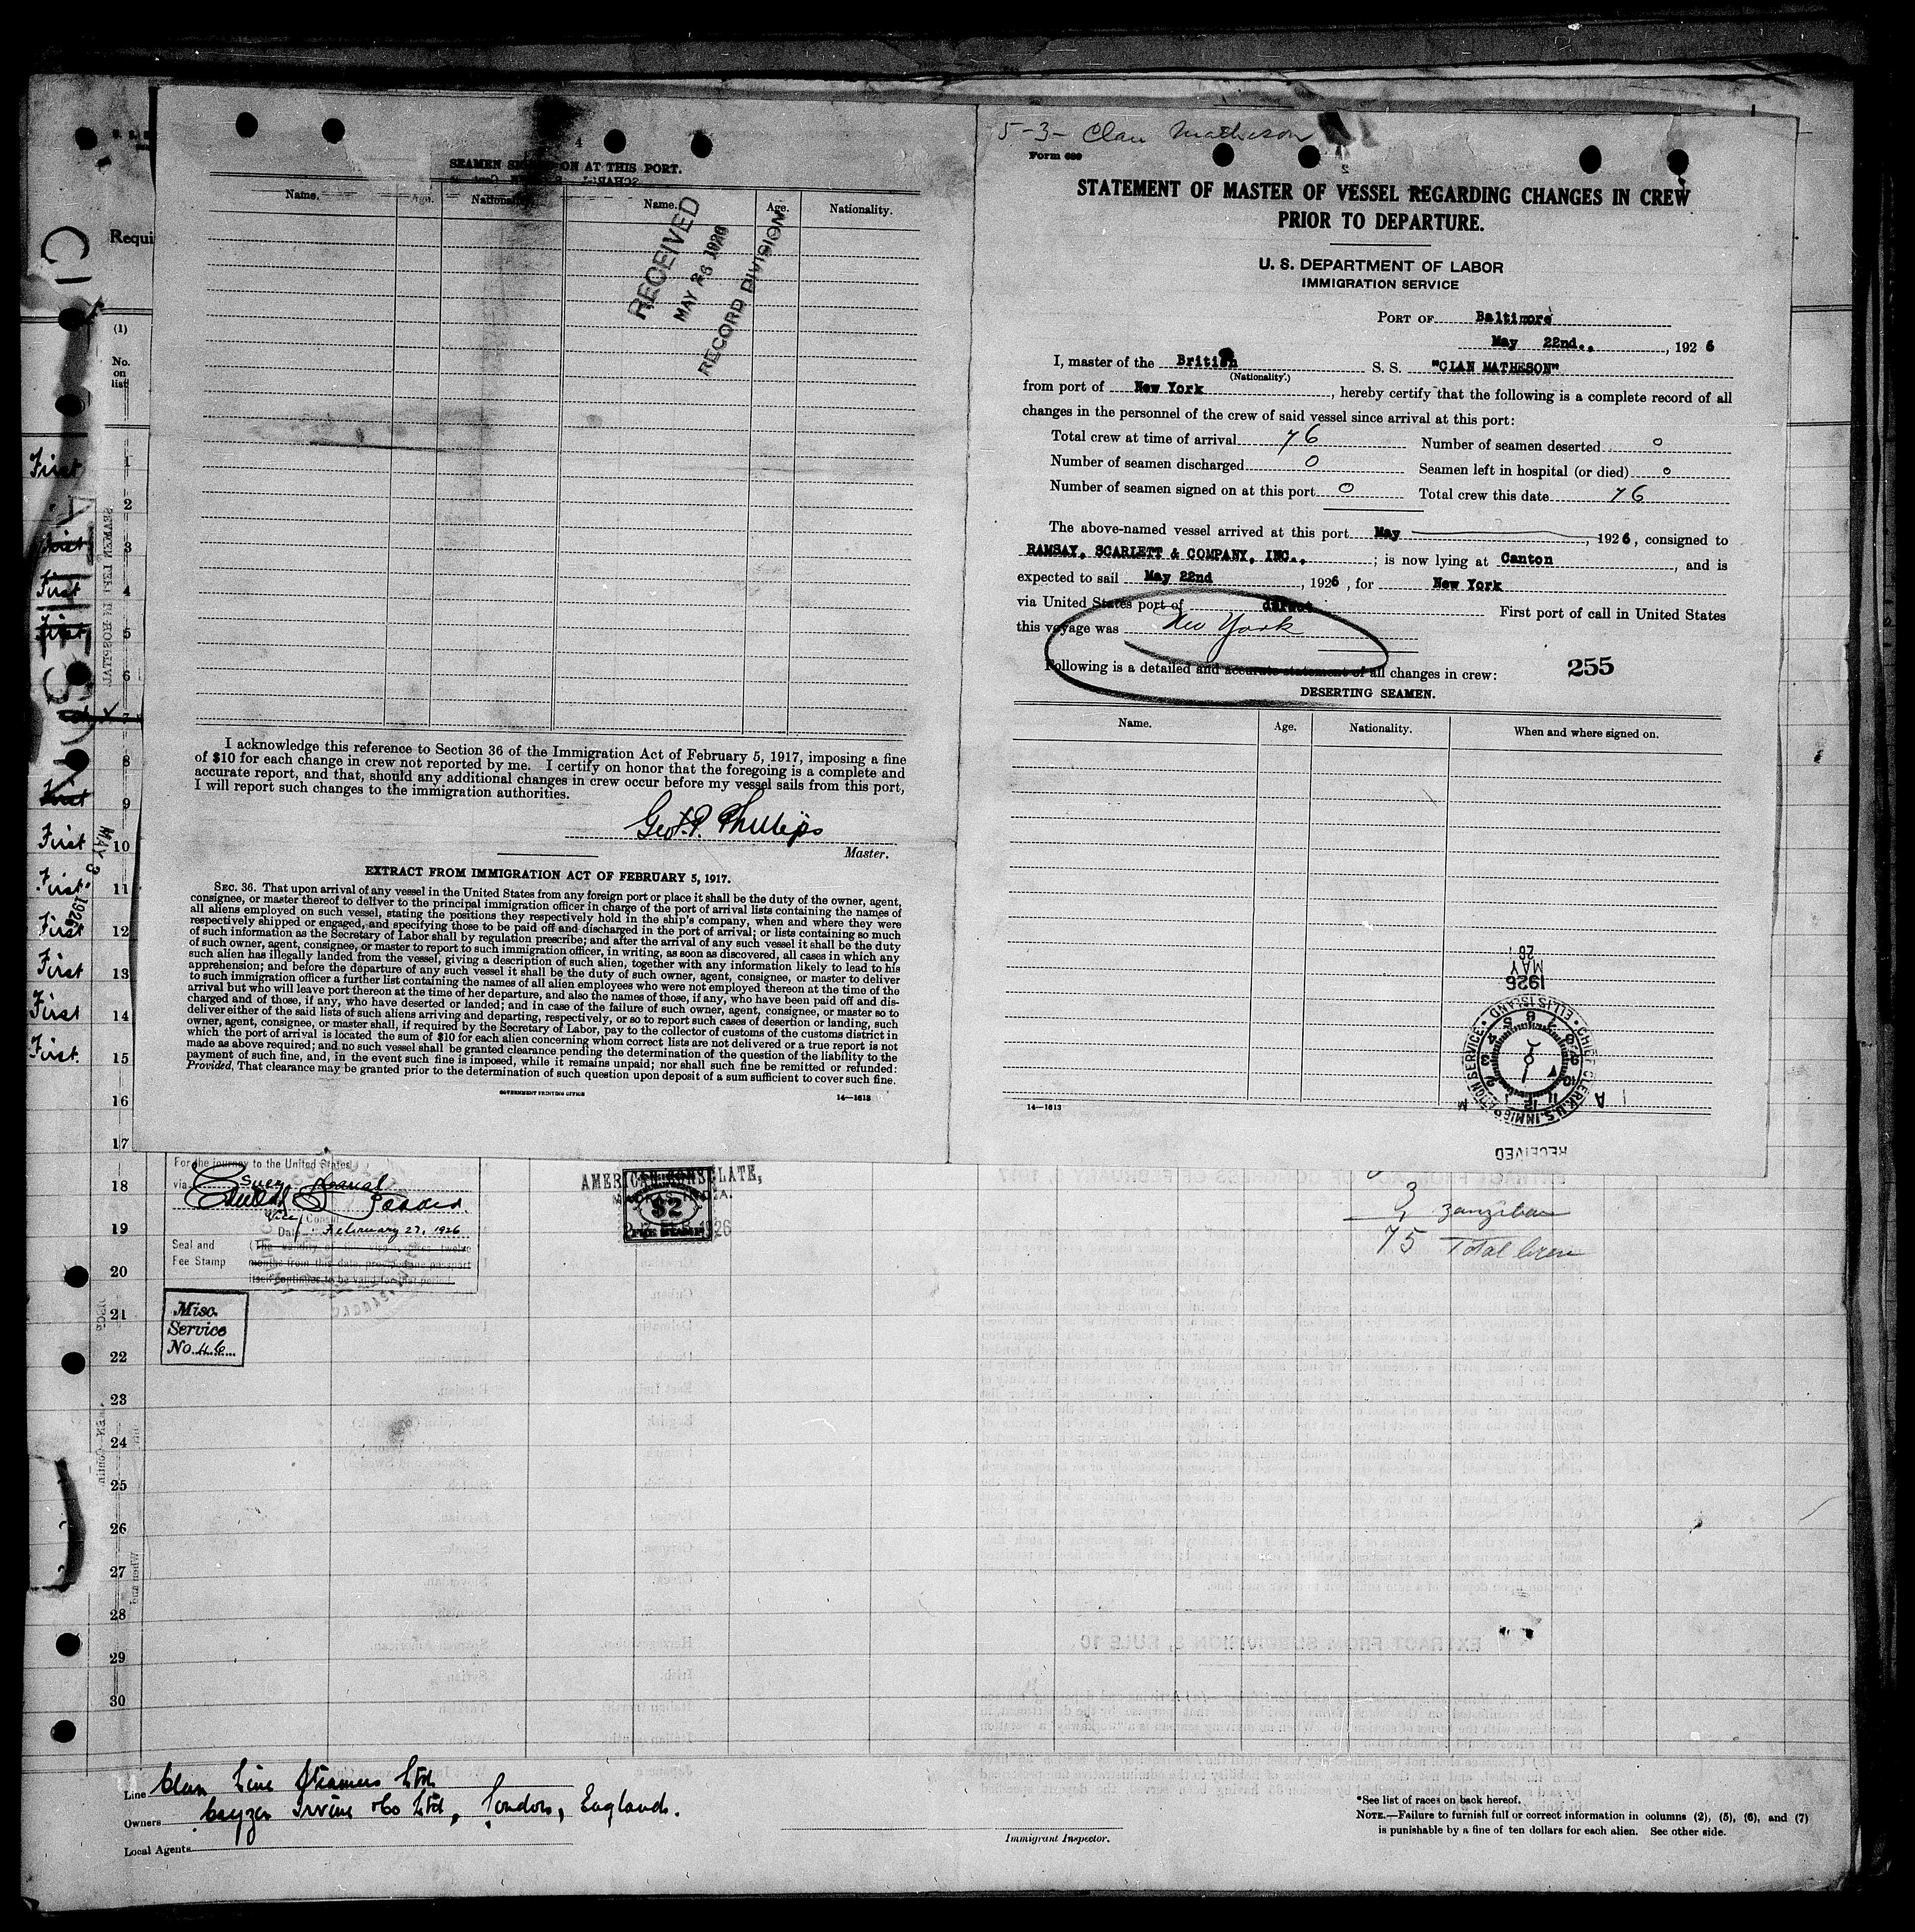 4
SEAMEN SIGNED ON AT THIS PORT.
Name. Age. Nationality. Name. Age. Nationality.
RECEIVED
MAY 26 1926
RECORD DIVISION
I acknowledge this reference to Section 36 of the Immigration Act of February 5, 1917, imposing a fine
of $10 for each change in crew not reported by me. I certify on honor that the foregoing is a complete and
accurate report, and that, should any additional changes in crew occur before my vessel sails from this port,
I will report such changes to the immigration authorities.
Geo. P. Phillips
Master.
EXTRACT FROM IMMIGRATION ACT OF FEBRUARY 5, 1917.
SEC. 36. That upon arrival of any vessel in the United States from any foreign port or place it shall be the duty of the owner, agent,
consignee, or master thereof to deliver to the principal immigration officer in charge of the port of arrival lists containing the names of
all aliens employed on such vessel, stating the positions they respectively hold in the ship's company, when and where they were
respectively shipped or engaged, and specifying those to be paid off and discharged in the port of arrival; or lists containing so much
of such information as the Secretary of Labor shall by regulation prescribe; and after the arrival of any such vessel it shall be the duty
of such owner, agent, consignee, or master to report to such immigration officer, in writing, as soon as discovered, all cases in which any
such alien has illegally landed from the vessel, giving a description of such alien, together with any information likely to lead to his
apprehension; and before the departure of any such vessel it shall be the duty of such owner, agent, consignee, or master to deliver
to such immigration officer a further list containing the names of all alien employees who were not employed thereon at the time of the
arrival but who will leave port thereon at the time of her departure, and also the names of those, if any, who have been paid off and dis-
charged and of those, if any, who have deserted or landed; and in case of the failure of such owner, agent, consignee, or master so to
deliver either of the said lists of such aliens arriving and departing, respectively, or so to report such cases of desertion or landing, such
owner, agent, consignee, or master shall, if required by the Secretary of Labor, pay to the collector of customs of the customs district in
which the port of arrival is located the sum of $10 for each alien concerning whom correct lists are not delivered or a true report is not
made as above required; and no such vessel shall be granted clearance pending the determination of the question of the liability to the
payment of such fine, and, in the event such fine is imposed, while it remains unpaid; nor shall such fine be remitted or refunded:
Provided, That clearance may be granted prior to the determination of such question upon deposit of a sum sufficient to cover such fine.
GOVERNMENT PRINTING OFFICE 14—1613
5-3- Clan Matheson
Form 689
2
STATEMENT OF MASTER OF VESSEL REGARDING CHANGES IN CREW
PRIOR TO DEPARTURE.
U. S. DEPARTMENT OF LABOR
IMMIGRATION SERVICE
PORT OF Baltimore
May 22nd., 1926
I, master of the British S. S. "CLAN MATHESON"
(Nationality.)
from port of New York, hereby certify that the following is a complete record of all
changes in the personnel of the crew of said vessel since arrival at this port:
Total crew at time of arrival 76 Number of seamen deserted 0
Number of seamen discharged 0 Seamen left in hospital (or died) 0
Number of seamen signed on at this port 0 Total crew this date 76
The above-named vessel arrived at this port May, 1926, consigned to
RAMSAY, SCARLETT & COMPANY, INC.,; is now lying at Canton, and is
expected to sail May 22nd, 1926, for New York
via United States port of direct First port of call in United States
this voyage was New York
Following is a detailed and accurate statement of all changes in crew:
255
DESERTING SEAMEN.
Name. Age. Nationality. When and where signed on.
1926
MAY
26
CHIEF CLERK U.S. IMMIGRATION SERVICE ELLIS ISLAND
RECEIVED
14—1613
Requi
(1)
No.
on
list
First 1
2
First 3
First 4
First 5
6
7
8
First 9
First 10
First 11
First 12
First 13
First 14
First 15
16
17
18
19
20
21
22
23
24
25
26
27
28
29
30
MAY 3 1926
For the journey to the United States
via Suez Canal
Vice Consul
Date February 27, 1926
Seal and
Fee Stamp
(The validity of this visa expires twelve
months from this date, provided the passport
itself continues to be valid for that period.
AMERICAN CONSULATE,
MADRAS, INDIA.
$2
FEE STAMP
Misc.
Service
No. 46
3 Zanzibar
75 Total Crew
Line Clan Line Steamers Ltd
Owners Cayzer Irvine &Co Ltd, London, England.
Local Agents
Immigrant Inspector.
*See list of races on back hereof.
NOTE.—Failure to furnish full or correct information in columns (2), (5), (6), and (7)
is punishable by a fine of ten dollars for each alien. See other side.